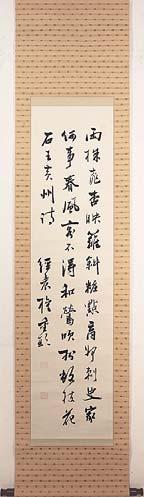 兩株桃杏映籬斜粧點商州刺史家
何事春風容不得和鶯吹折數枝花
右王黄州詩